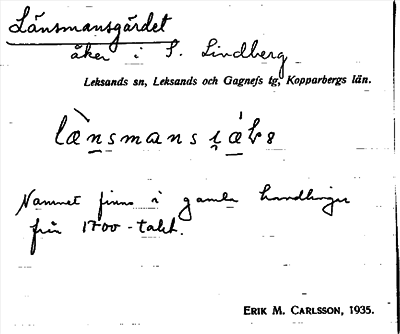 Länsmansgärdet
åker i S. Lindberg
Leksands sn, Leksands och Gagnefs tg, Kopparbergs län.
Namnet finns i gamla handlingar
från 1700-talet.
ERIK M. CARLSSON, 1935.